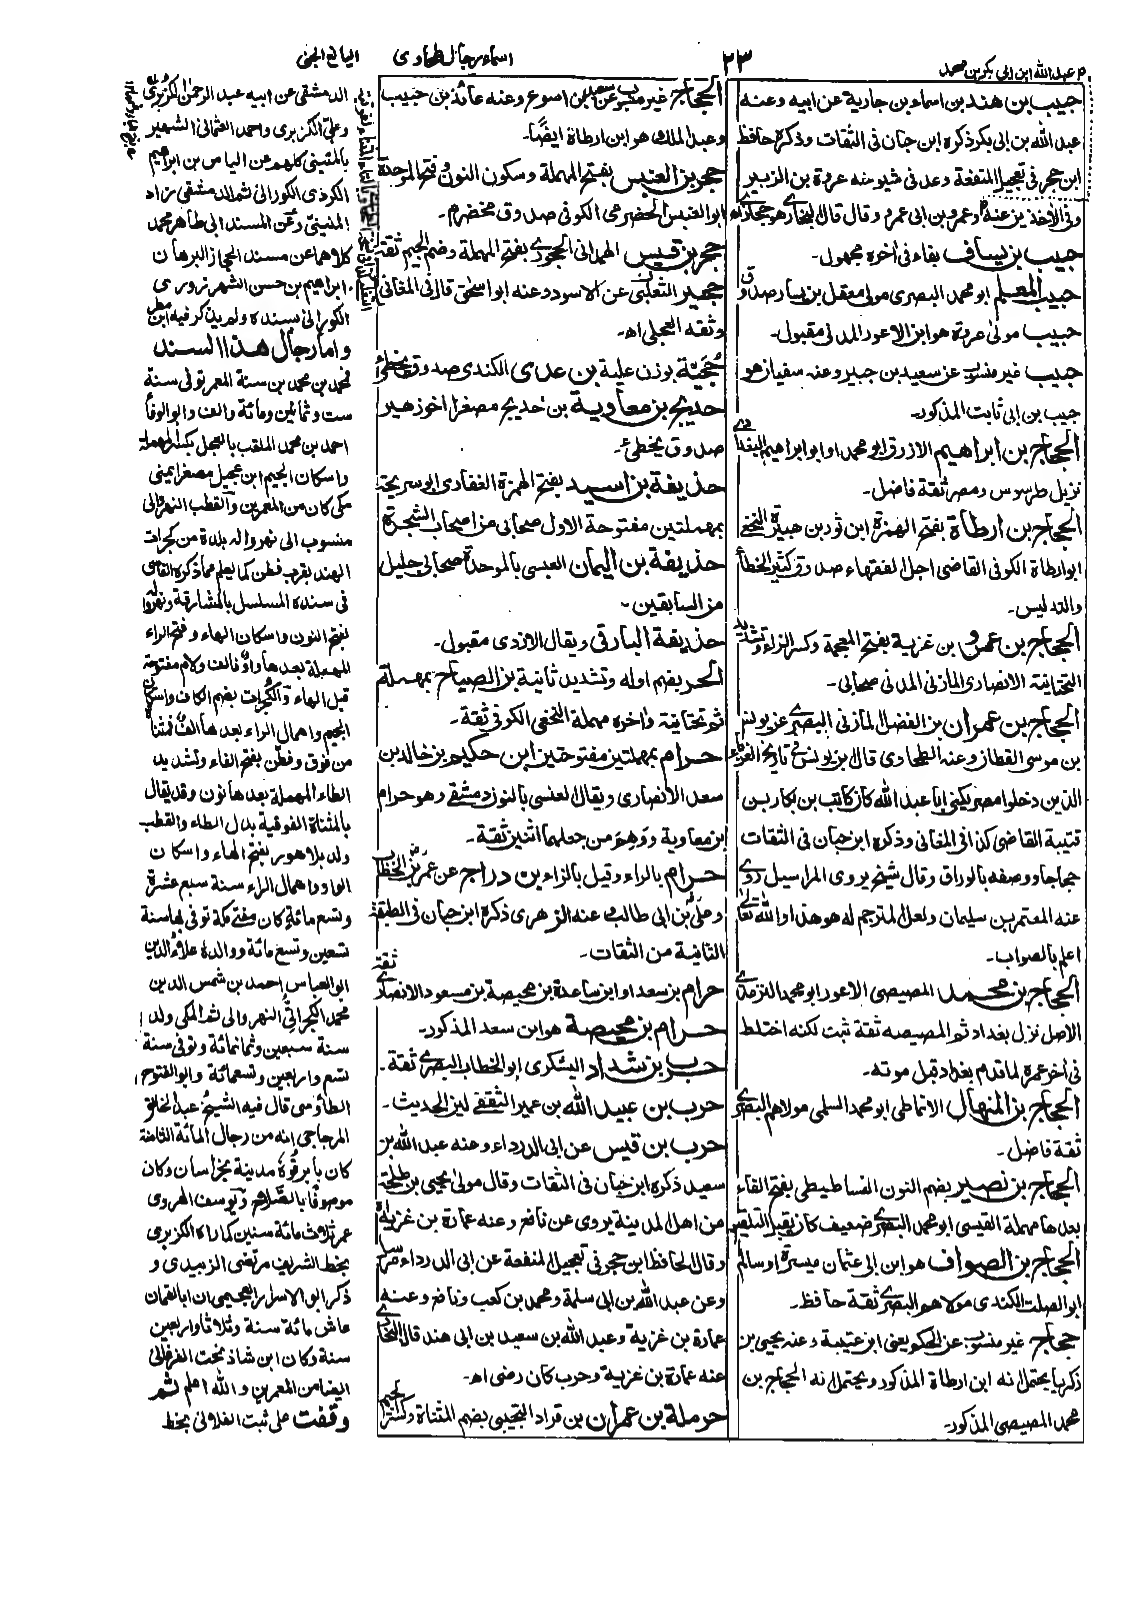 اليانع الجنى
اسماء رجال طحاوى
٢٣
عبد الله ابن ابى بكر بن محمد
حبيب بن هند بن اسماء بن جارية عن ابيه وعنه
عبد الله بن ابى بكر ذكره ابن حبان فى الثقات وذكره حافظ
ابن حجر فى تعجيل المنفعة وعد فى شيوخه عروة بن الزبير
وفى الاخذين عنه وعمرو بن ابى عمرو وقال قال البخارى هو حجازى اه
حبيب بن يساف بفاء فى آخره مجهول۔
حبيب المعلم ابو محمد البصرى مولى معقل بن يسار صدوق
حبيب مولى عروة هو ابن الاعور المدنى مقبول۔
حبيب غير منسوب عن سعيد بن جبير وعنه سفيان هو
حبيب بن ابى ثابت المذكور۔
الحجاج بن ابراهيم الازرق ابو محمد او ابو ابراهيم البغدادى
نزيل طرسوس ومصر ثقة فاضل۔
الحجاج بن ارطاة بفتح الهمزة ابن ثور بن هبيرة النخعى
ابو ارطاة الكوفى القاضى احد الفقهاء صدوق كثير الخطأ
والتدليس۔
الحجاج بن عمرو بن غزية بفتح المعجمة وكسر الزاء وتشديد
التحتانية الانصارى المازنى المدنى صحابى۔
الحجاج بن عمران بن الفضل المازنى البصرى عن يونس
بن موسى القطان وعنه الطحاوى قال ابن يونس فى تاريخ الغرباء
الذين دخلوا مصر يكنى ابا عبد الله كان كاتب بن بكار بن
قتيبة القاضى كذا فى المغانى وذكره ابن حبان فى الثقات
حجاجا ووصفه بالوراق وقال شيخ يروى المراسيل روى
عنه المعتمر بن سليمان ولعل المترجم له هو هذا والله تعالى
اعلم بالصواب۔
الحجاج بن محمد المصيصى الاعور ابو محمد الترمذى
الاصل نزل بغداد ثم المصيصه ثقة ثبت لكنه اختلط
فى آخر عمره لما قدم بغداد قبل موته۔
الحجاج بن المنهال الانماطى ابو محمد السلمى مولاهم البصرى
ثقة فاضل۔
الحجاج بن نصير بضم النون الفساطيطى بفتح الفاء
بعدها مهملة القيسى ابو محمد البصرى ضعيف كان يقبل التلقين
الحجاج بن الصواف هو ابن ابى عثمان ميسرة او سالم
ابو الصلت الكندى مولاهم البصرى ثقة حافظ۔
حجاج غير منسوب عن الحكم يعنى ابن عتيبة وعنه يحيى بن
زكريا يحتمل انه ابن ارطاة المذكور ويحتمل انه الحجاج بن
محمد المصيصى المذكور۔
الحجاج غير منسوب عن سعيد بن اسوع وعنه عائذ بن حبيب
وعبد الملك هو ابن ارطاة ايضًا۔
حجر بن العنبس بفتح المهملة وسكون النون وفتح الموحدة
ابو العنبس الحضرمى الكوفى صدوق مخضرم۔
حجر بن قيس الهمدانى الحجورى بفتح المهملة وضم الجيم ثقة
حجير التغلبى عن الاسود وعنه ابو اسحق قال فى المغانى
وثقه العجلى اه۔
حجية بوزن علية بن عدى الكندى صدوق يخطئ
حديج بن معاوية بن حديج مصغرا اخو زهير
صدوق يخطئ۔
حذيفة بن اسيد بفتح الهمزة الغفارى ابو سريحة
بمهملتين مفتوحة الاول صحابى من اصحاب الشجرة
حذيفة بن اليمان العبسى بالموحدة صحابى جليل
من السابقين۔
حذيفة البارقى ويقال الازدى مقبول۔
الحر بضم اوله وتشديد ثانية بن الصياح بمهملة
ثم تحتانية وآخره مهملة النخعى الكوفى ثقة۔
حرام بمهملتين مفتوحتين ابن حكيم بن خالد بن
سعد الانصارى ويقال العنسى بالنون دمشقى وهو حرام
ابن معاوية ووهم من جعلهما اثنين ثقة۔
حرام بالراء وقيل بالزاء بن دراج عن عمر بن الخطاب
وعلى بن ابى طالب عنه الزهرى ذكره ابن حبان فى الطبقة
الثانية من الثقات۔
حرام بن سعد او ابن ساعدة بن محيصة بن مسعود الانصارى ثقة
حرام بن محيصة هو ابن سعد المذكور۔
حرب بن شداد اليشكرى ابو الخطاب البصرى ثقة۔
حرب بن عبيد الله بن عمير الثقفى لين الحديث۔
حرب بن قيس عن ابى الدرداء وعنه عبد الله بن
سعيد ذكره ابن حبان فى الثقات وقال مولى يحيى بن طلحة
من اهل المدينة يروى عن نافع وعنه عمارة بن غزية اه
وقال الحافظ ابن حجر فى تعجيل المنفعة عن ابى الدرداء مرسلا
وعن عبد الله بن ابى سلمة ومحمد بن كعب ونافع وعنه
عمارة بن غزية وعبد الله بن سعيد بن ابى هند قال البخارى
عنه عمارة بن غزية وحرب كان رضى اه۔
حرملة بن عمران بن قراد التجيبى بضم المثناة وكسر الجيم
الدمشقى عن ابيه عبد الرحمن الكزبرى
وعلى الكزبرى واحمد العثمانى الشهير
بالمنينى كلهم عن الياس بن ابراهيم
الكردى الكورانى ثم الدمشقى زاد
المنينى وعن المسند ابى طاهر محمد
كلاهما عن مسند الحجاز البرهان
ابراهيم بن حسن الشهرزورى
الكورانى بسنده ولم يذكر فيه ابن مطير
واما رجال هذا السند
فمحمد بن محمد بن سنة المعمر توفى سنة
ست وثمانين ومائة والف وابو الوفا
احمد بن محمد الملقب بالعجل بكسر المهملة
واسكان الجيم ابن عجيل مصغرا يمنى
مكى كان من المعمرين والقطب النهروالى
منسوب الى نهرواله بلدة من كجرات
الهند بقرب فطن كما يعلم مما ذكره القاسى
فى سنده المسلسل بالمشارقة ونهرواله
بفتح النون واسكان الهاء وفتح الراء
المهملة بعدها واو فالف ولام مفتوحة
قبل الهاء والكجرات بضم الكاف واسكان
الجيم واهمال الراء بعدها الف فمثناة
من فوق وفطن بفتح الفاء وتشديد
الطاء المهملة بعدها نون وقد يقال
بالمثناة الفوقية بدل الطاء والقطب
ولد بلاهور بفتح الهاء واسكان
الواو واهمال الراء سنة سبع عشرة
وتسع مائة كان مفتى مكة توفى بها سنة
تسعين وتسع مائة ووالده علاء الدين
ابو العباس احمد بن شمس الدين
محمد الكجراتى النهروالى ثم المكى ولد
سنة سبعين وثمانمائة وتوفى سنة
تسع واربعين وتسعمائة وابو الفتوح
الطاؤسى قال فيه الشيخ عبد الخالق
المزجاجى انه من رجال المائة الثامنة
كان بابرقوه مدينة بخراسان وكان
موصوفا بالصلاح ويوسف الهروى
عمر ثلاث مائة سنين كما راه الكزبرى
بخط الشريف مرتضى الزبيدى و
ذكر ابو الاسرار العجيمى ان ابا لقمان
عاش مائة سنة وثلاثا واربعين
سنة وكان ابن شاذبخت الفرغانى
ايضا من المعمرين والله اعلم ثم
وقفت على ثبت الفلانى بخط